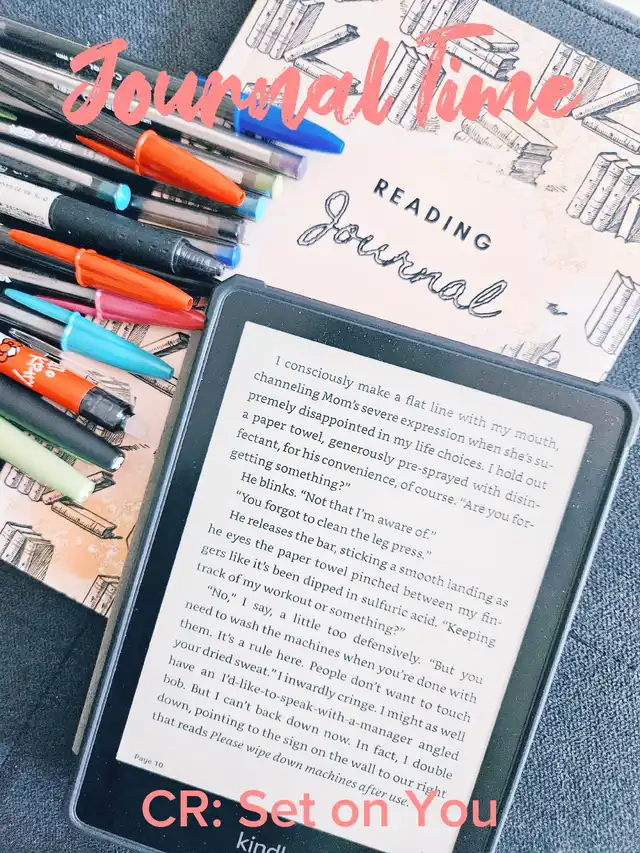 Journal Time
READING
Journal
I consciously make a flat line with my mouth,
channeling Mom's severe expression when she's su-
premely disappointed in my life choices. I hold out
a paper towel, generously pre-sprayed with disin-
fectant, for his convenience, of course. "Are you for-
getting something?"
He blinks. "Not that I'm aware of."
"You forgot to clean the leg press."
He releases the bar, sticking a smooth landing as
he eyes the paper towel pinched between my fin-
gers like it's been dipped in sulfuric acid. "Keeping
track of my workout or something?"
"No," I say, a little too defensively. "But you
need to wash the machines when you're done with
them. It's a rule here. People don't want to touch
your dried sweat." I inwardly cringe. I might as well
have an I'd-like-to-speak-with-a-manager angled
bob. But I can't back down now. In fact, I double
down, pointing to the sign on the wall to our right
that reads Please wipe down machines after use.
Page 10
CR: Set on You
kindl